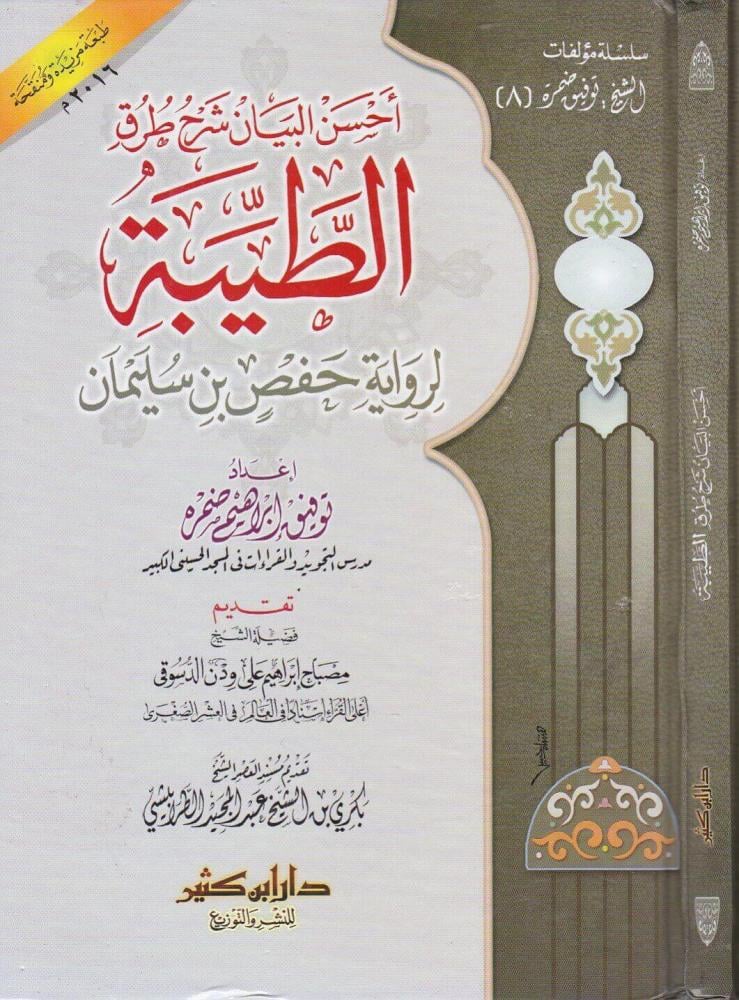 طبعة مزيدة ومنقحة
٢٠١٦م
سلسلة مؤلفات
الشيخ توفيق ضمرة (٨)
أَحْسَنُ البَيَان شَرْح طُرُقِ
الطَّيِّبَةُ
لِرِوَايَةِ حَفْصٍ بْنِ سُلَيْمَان
إعْدَادُ
توفيق إبراهيم ضمره
مدرس التجويد والقراءات في المسجد الحسيني الكبير
تقديم
فضيلة الشيخ
مصباح إبراهيم علي ودن الدسوقي
أعلى القراء إسنادا في العالم في العشر الصغرى
تقديم مسند العصر الشيخ
بكري بن الشيخ عبد المجيد الطرابيشي
دار ابن كثير
للنشر والتوزيع
إعداد توفيق إبراهيم ضمره
أحسن البيان شرح طرق الطيبة
دار ابن كثير